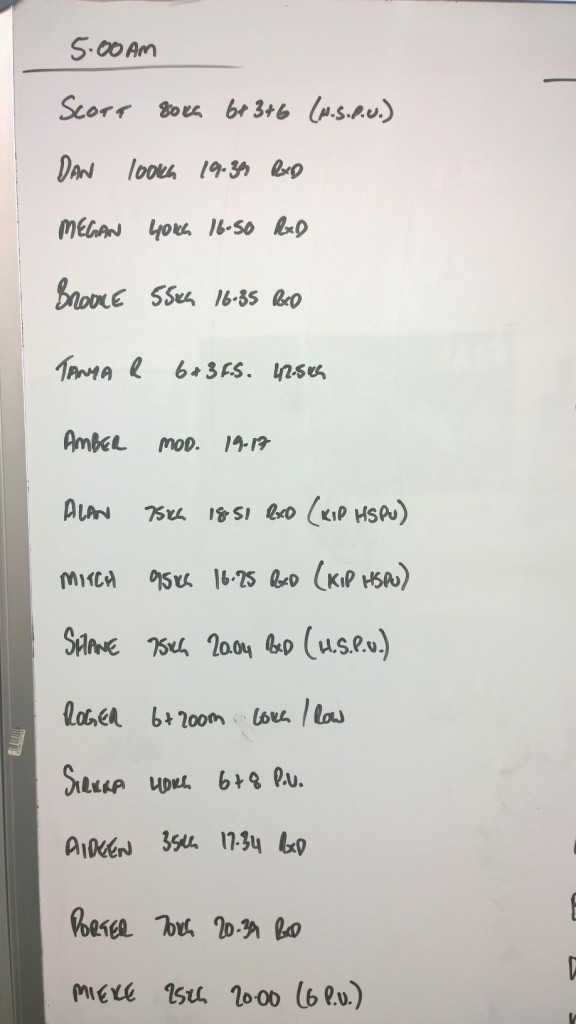 5.00AM
SCOTT 80KG 6+3+6 (H.S.P.U.)
DAN 100KG 19.39 RxD
MEGAN 40KG 16.50 RxD
BROOKE 55KG 16.35 RxD
TANYA R 6+3 F.S. 42.5KG
AMBER MOD. 19.17
ALAN 75KG 18.51 RxD (KIP HSPU)
MITCH 95KG 16.25 RxD (KIP HSPU)
SHANE 75KG 20.04 RxD (H.S.P.U.)
ROGER 6+200m 60KG / ROW
SIRKKA 40KG 6+8 P.U.
AIDEEN 35KG 17.34 RxD
PORTER 70KG 20.39 RxD
MIEKE 25KG 20.00 (6 P.U.)